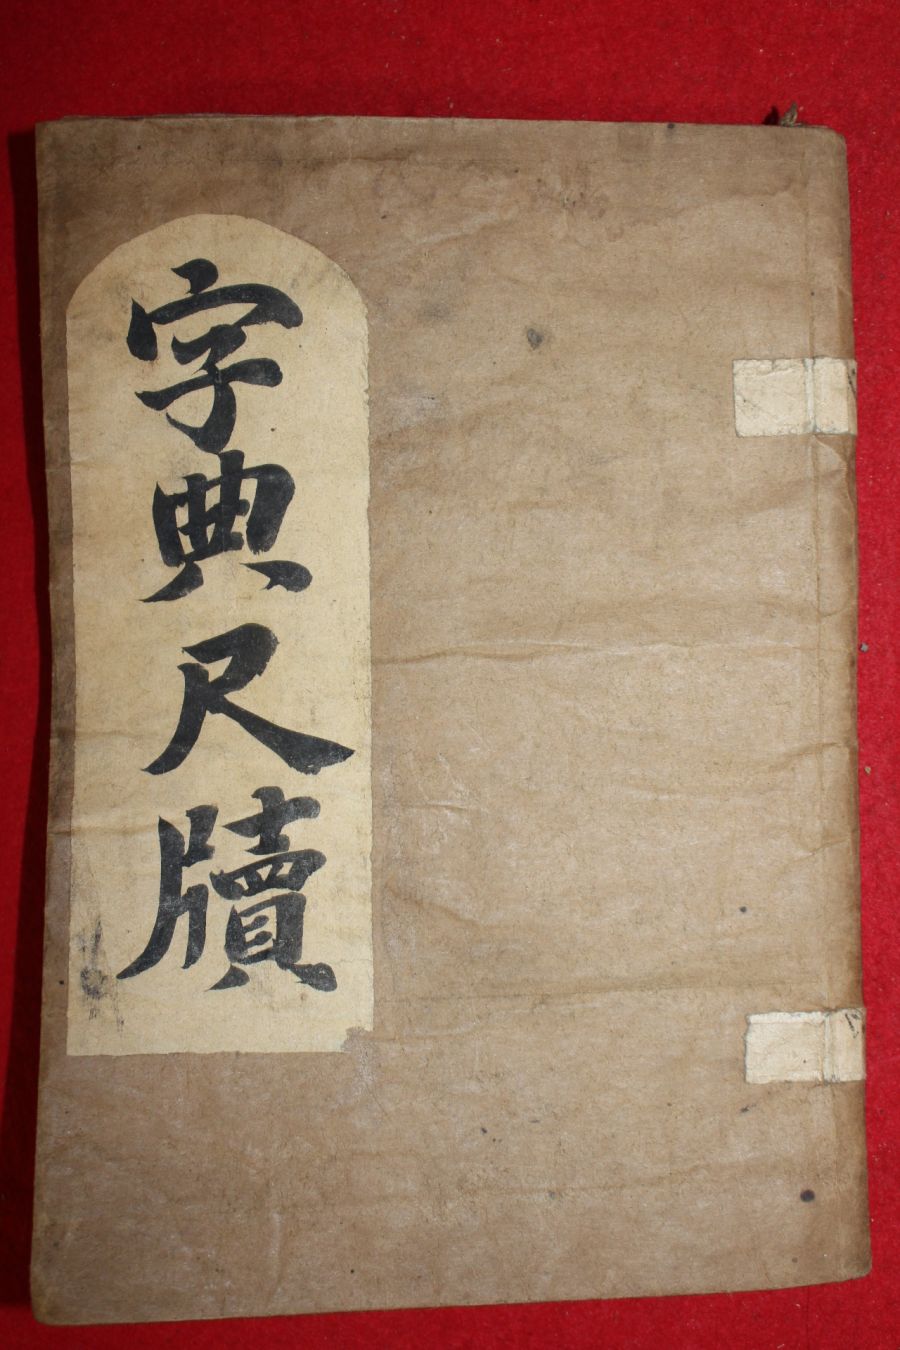 字典尺牘